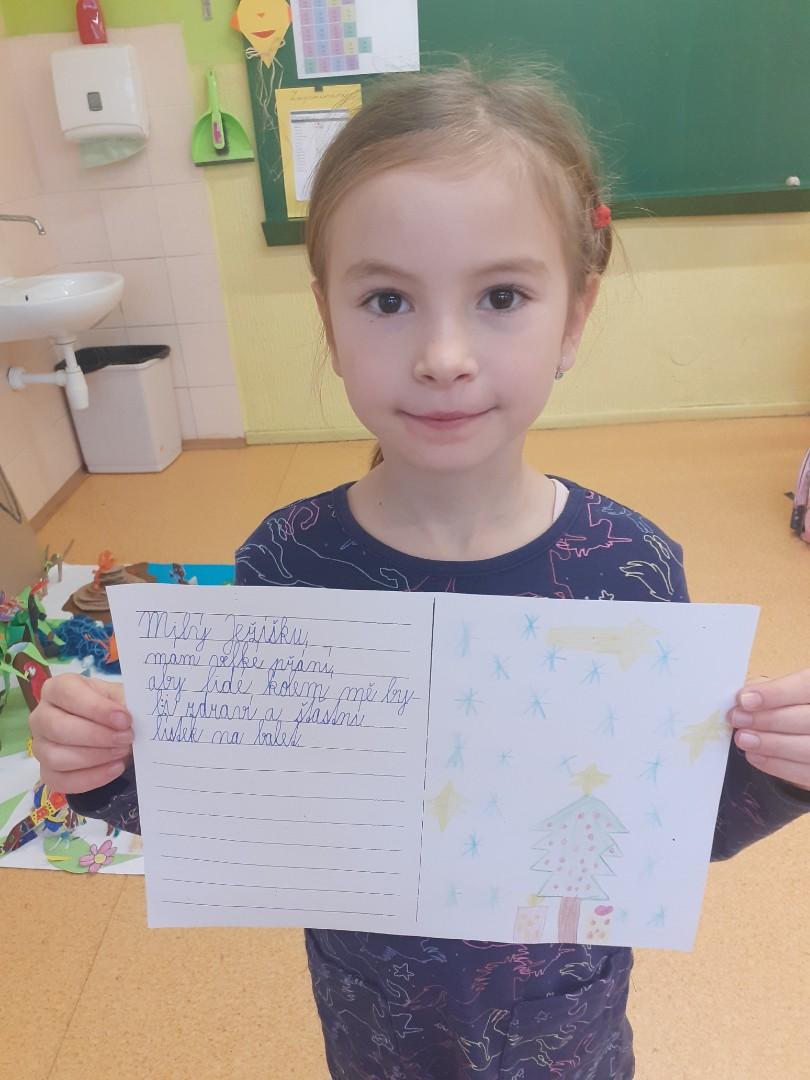 Milý Ježíšku,
mám velké přání,
aby lidé kolem mě by-
li zdraví a šťastní
lístek na balet